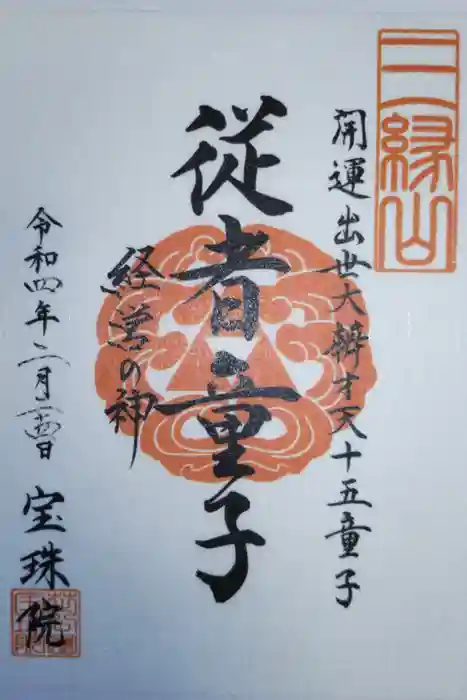 三縁山
開運出世大辨才天十五童子
従者童子
経営の神
令和四年二月十四日
宝珠院